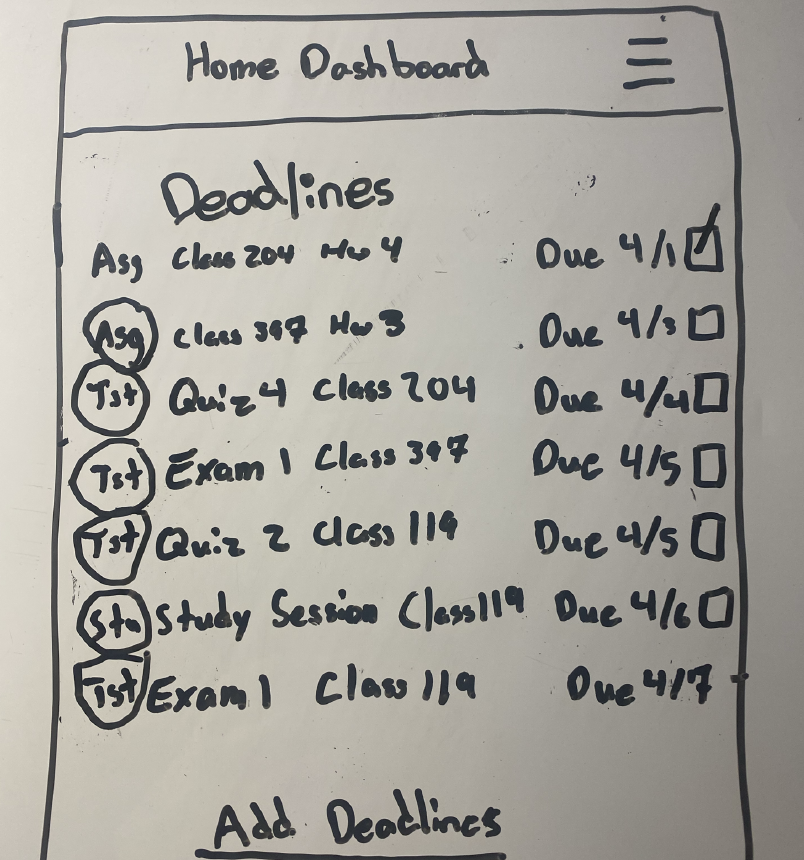 Home Dashboard
Deadlines
Asg Class 204 Hw 4 Due 4/1
Asg Class 397 Hw 3 Due 4/3
Tst Quiz 4 Class 204 Due 4/4
Tst Exam 1 Class 397 Due 4/5
Tst Quiz 2 Class 119 Due 4/5
Stu Study Session Class 119 Due 4/6
Tst Exam 1 Class 119 Due 4/7
Add Deadlines